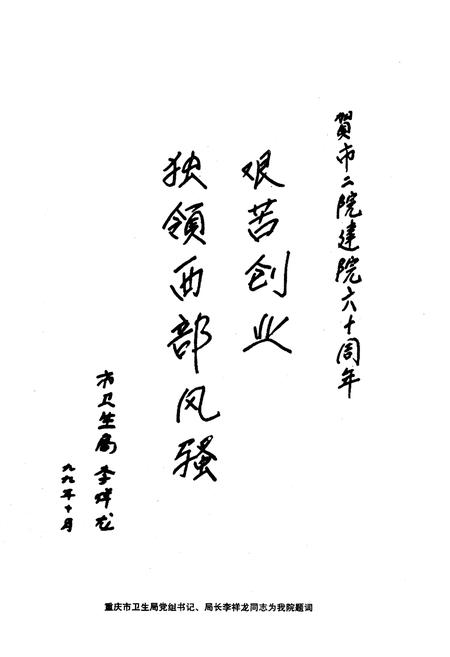 賀市二院建院六十周年
艰苦创业
独領西部风骚
市卫生局李祥龙
九九年十月
重庆市卫生局党组书记、局长李祥龙同志为我院题词